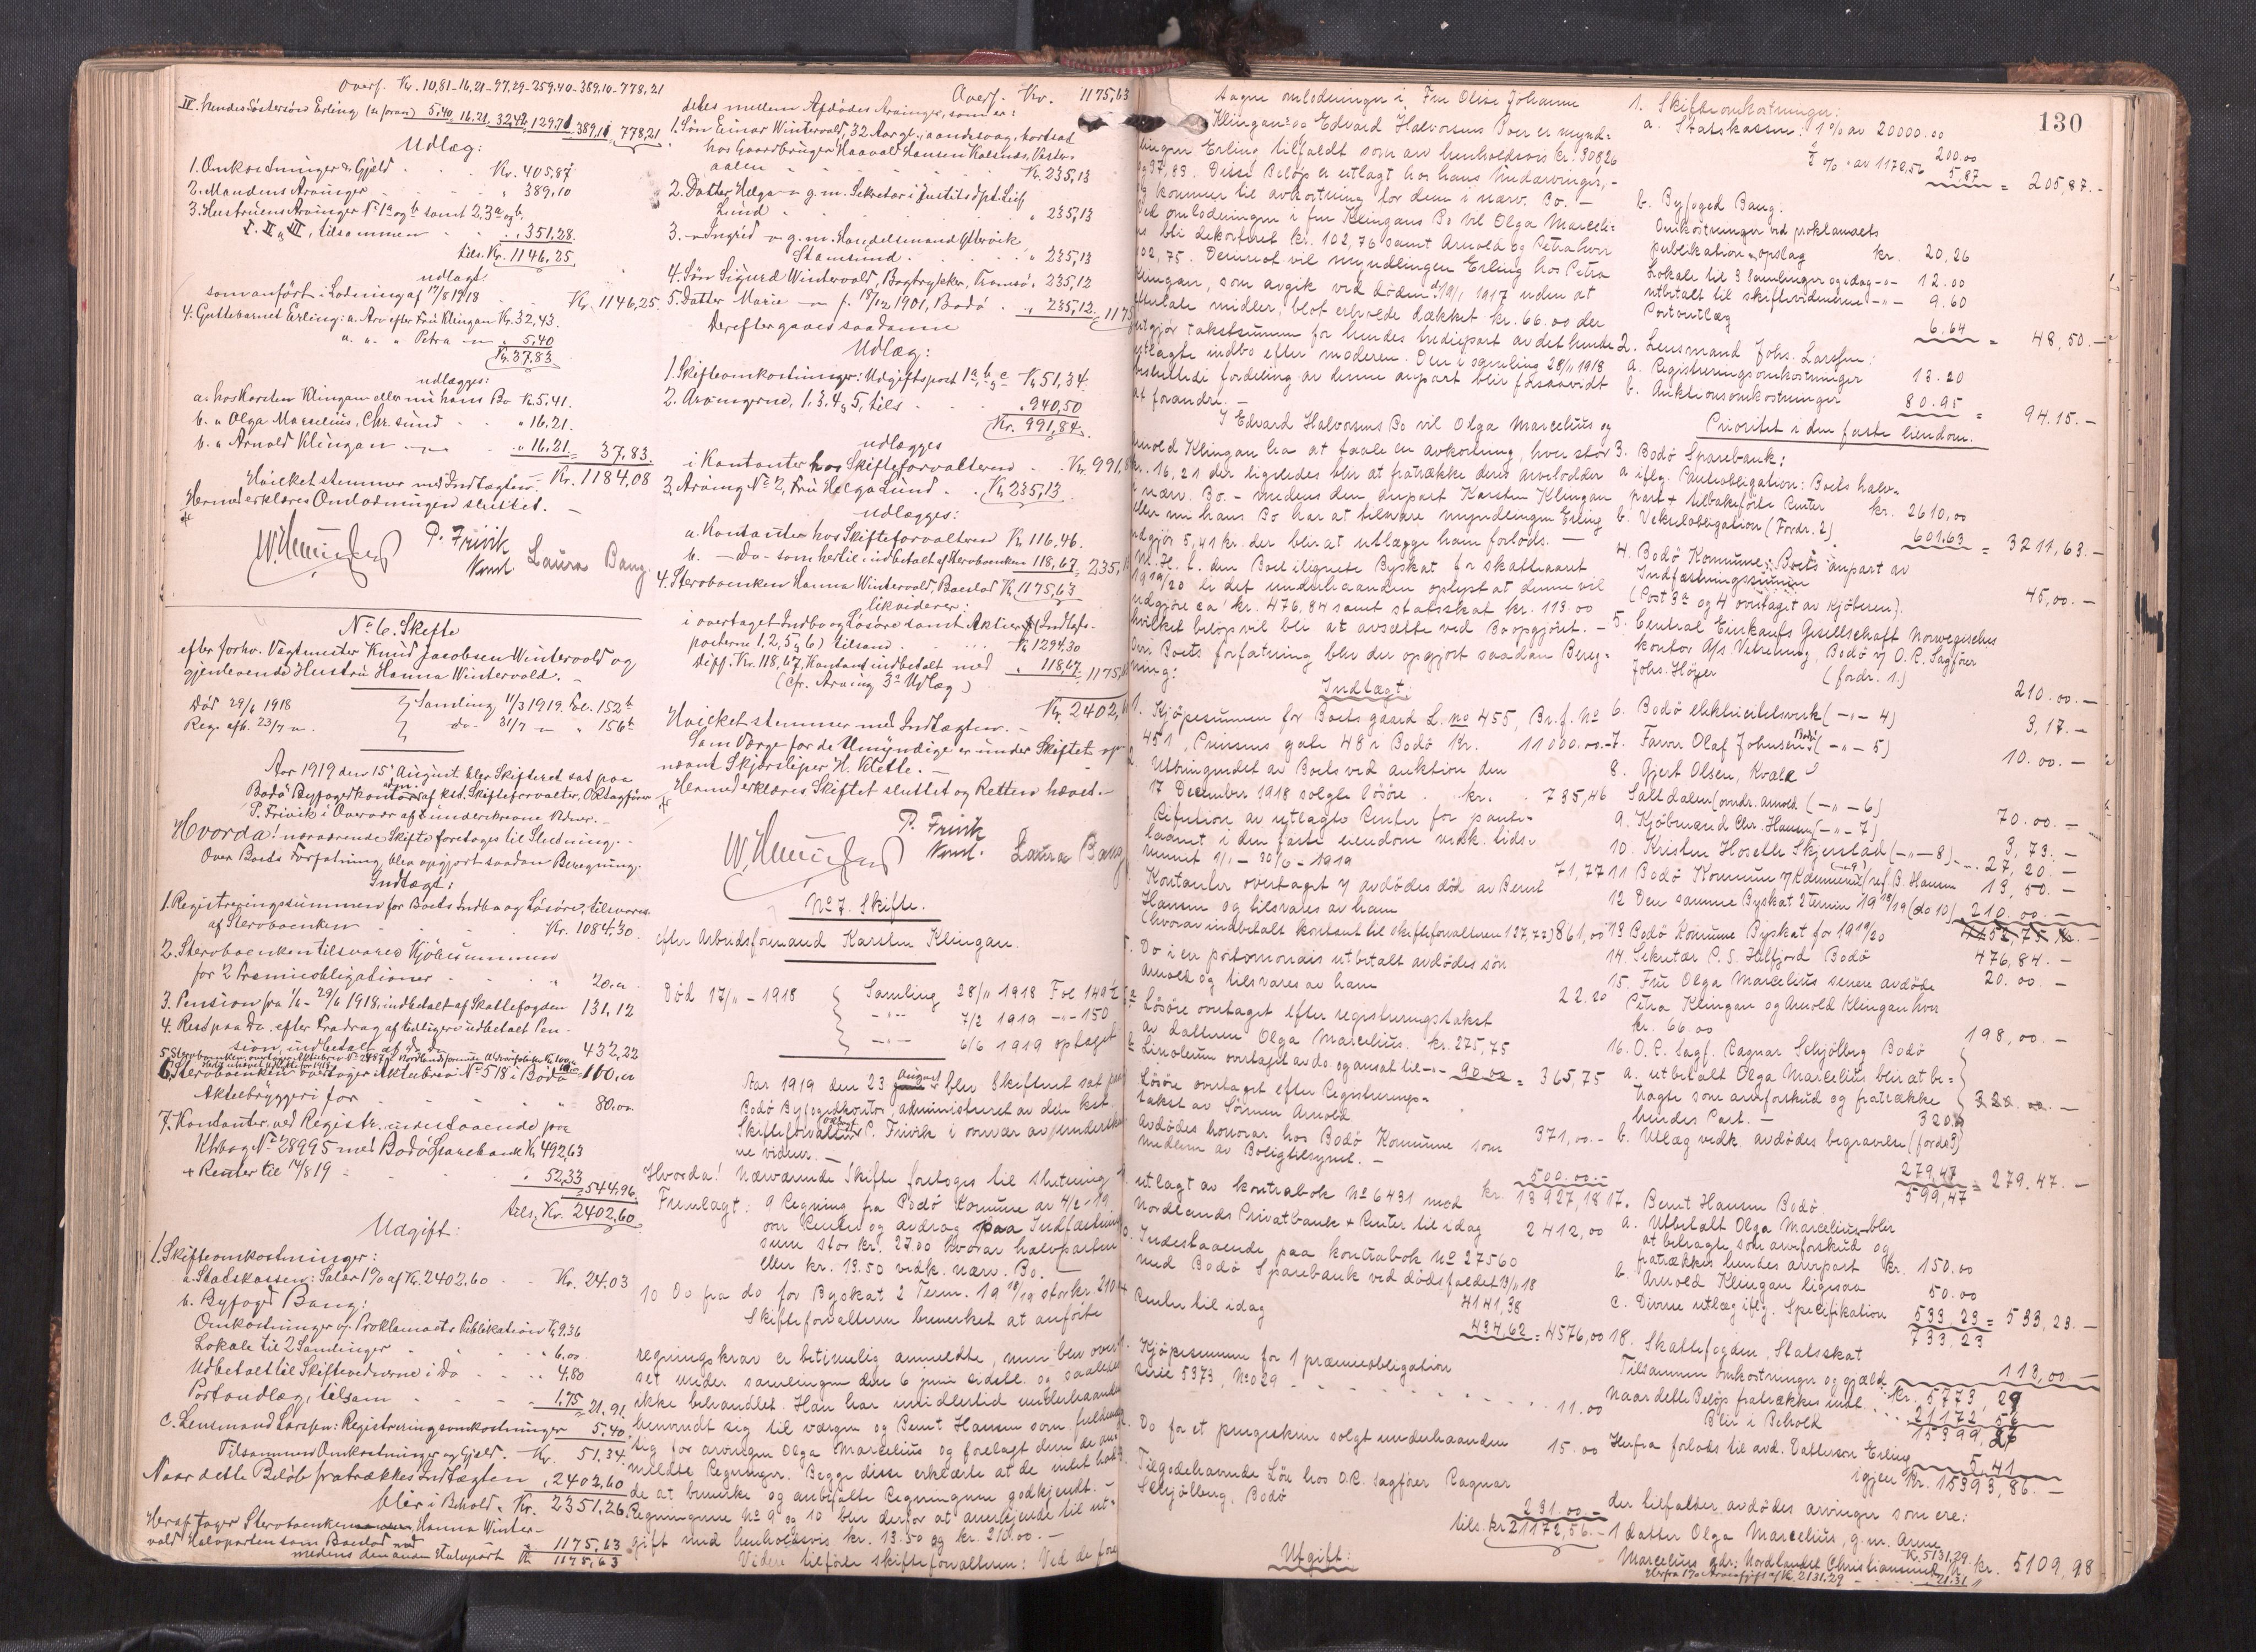 Overf. Kr. 10,81-16,21-97,29-259,40-389,10-778,21
IV. hendes Söstersön Erling (u foran) 5,40 16.21 32,42 129,71 389,11 778,21
Udlæg:
1. Omkostninger & Gjæld . . Kr. 405,87
2. Mandens Arvinger - - - " 389,10
3. Hustruens Arvinger No 1a og b samt 2, 3a og b
I. II & III, tilsammen - - " 351,28.
tils. Kr. 1146,25
udlagt
som anfört i Lodning af 17/8 1918 - - Kr. 1146,25.
4. Guttebarnet Erling: a. Arv efter Fru Klingan Kr. 32,43.
a. " " Petra " 5,40
Kr. 37.83
udlægges:
a. hos Karsten Klingan eller nu hans Bo Kr. 5,41.
b. " Olga Marcelius, Chr.sund - - " 16,21.
b. " Arnold Klingan - " - " 16,21 = 37,83.
Hvilket stemmer med Indtægten = Kr. 1184,08
Hermed erklæres Omlodningen sluttet. -
P. Frivik
Const
Laura Bang
No 6. Skifte
efter forhv. Vagtmester Knud Jacobsen Wintervold og
gjenlevende Hustru Hanna Wintervold. -
Död 29/6 1918 Samling 11/3 1919. Fol. 152b
Reg. afh. 23/7 " do 31/7 " " 156b
Aar 1919 den 15' August blev Skifteret sat paa
Bodö Byfogedkontor adm. af kst. Skifteforvalter, O.R.sagförer
P. Frivik i Overvær af underskrevne Vidner. -
Hvorda! nærværende Skifte foretoges til Slutning. -
Over Boets Forfatning blev opgjort saadan Beregning.
Indtægt:
1. Registreringssummen for Boets Indbo og Lösöre, tilsvares
af Sterboenken - - - Kr. 1084,30.
2. Sterboenken tilsvarer Kjöbesummen
for 2 Premieobligationer - - - " 20,00
3. Pension fra 1/4 - 29/6 1918, indbetalt af Skattefogden 131,12
4. Rest paa Do. efter Fradrag af tidligere udbetalt Pen-
sion, indbetalt af do do 432,22
6. Sterboenken overtager Aktiebrev No 518 i Bodö
Aktiebryggeri for - - - - " 80.00
7. Kontanter ved Registr. indestaaende paa
Ktrbog No 28995 med Bodö Sparebank Kr. 492,63
+ Renter til 14/8 19 - - - " 52,33 = 544,96
tils. Kr. 2402,60
Udgift:
1. Skifteomkostninger:
a. Statskassen: Salær 1 % af Kr. 2402.60 - - Kr. 24.03
b. Byfoged Bang:
Omkostninger v. Proklamaets Publikation Kr. 9.36
Lokale til 2 Samlinger - - - " 6,00
Udbetalt til Skiftevidnerne i Do - - " 4.80
Portoudlæg, tilsam - - - 1,75 = 21.91
c. Lensmand Larssen: Registreringsomkostninger 5,40
Tilsammen Omkostninger og Gjæld. Kr. 51,34
Naar dette Belöb fratrækkes Indtægten " 2402,60
blir i Behold - Kr. 2351,26
Heraf tager Sterboenken Hanna Winter-
vold Halvparten som Boeslod med 1175,63
medens den anden Halvpart Kr. 1175,63
Overf. Kr. 1175,63
deles mellem Afdödes Arvinger, som er:
1. Sön Einar Wintervold, 32 Aar gl., aandssvag, bortsat
hos Gaardbruger Haavald Hansen Kalsnæs, Vester-
aalen - - - - Kr. 235,13
2. Datter Helga - g.m. Sekretær i Justitsdpt. Leif
Lund - - - - " 235,13
3. - " - Ingrid - g.m. Handelsmand Ytterwik
Stamsund - - - - " 235,13
4. Sön Sigurd Wintervold, Bogtrykker, Tromsö. 235,12
5. Datter Marie - f. 18/12 1901, Bodö . " 235,12. 1175
Derefter gaaes saadanne
Udlæg:
1. Skifteomkostninger: Udgiftspost 1a, b & c Kr. 51,34.
2. Arvingerne, 1. 3. 4 & 5, tils - - " 940,50
Kr. 991,84.
udlægges
i Kontanter hos Skifteforvalteren . . Kr. 991,8
3. Arving No 2, Fru Helga Lund . . Kr. 235,13
udlægges:
a. Kontanter hos Skifteforvalteren Kr. 116,46.
b. - do - som hertil indbetalt af Sterboenken 118,67 = 235,1
4. Sterboenken Hanna Wintervold, Boeslod Kr. 1175,63
likviderer:
i overtaget Indbo og Lösöre samt Aktier (Indtægts-
posterne 1, 2, 5 & 6) tilsam . . . Kr. 1294.30
Diff. Kr. 118,67, Kontant indbetalt med " 118,67 = 1175,6
(cfr. Arving 3a Udlæg)
Kr. 2402,6
Hvilket stemmer med Indtægten. -
Som Værge for de Umyndige er under Skiftet op-
nævnt Skjærsliper H. Klette. -
Hermed erklæres Skiftet sluttet og Retten hævet. -
P. Frivik
Const.
Laura Bang
No 7. Skifte.
efter Arbeidsformand Karsten Klingan.
Död 17/11 - 1918 Samling 28/11 1918 Fol 149b
- " - 7/2 1919 - " - 150
- " - 6/6 1919 optaget
Aar 1919 den 23 august blev Skifteret sat paa
Bodö Byfogedkontor, administreret av den kst.
Skifteforvalter P. Frivik i overvær av underskrev
ne vidner. -
Hvorda! Nærværende Skifte foretoges til slutning
Fremlagt: 9 Regning fra Bodö Komune av 4/2-19
over Renter og avdrag paa Indfæstning
sum stor kr. 27.00 hvorav halvparten
eller kr. 13.50 vedk. nærv. Bo. -
10 Do fra do for Byskat 2 Term. 19 18/19 stor kr. 210
Skifteforvalteren bemerket at anförte
regningskrav er betimelig anmeldte, men blev over-
set under samlingen den 6 juni sidstl. og saaledes
ikke behandlet. Han har imidlertid underhaanden
henvendt sig til værgen og Bernt Hansen som fuldmæg
tig for arvingen Olga Marcelius og forelagt dem de an
meldte Regninger. Begge disse erklærte at de intet hadde
de at bemerke og anbefalte Regningerne godkjendt. -
Regningerne No 9 og 10 blev derfor at anerkjende til ut-
gift med henholdsvis kr. 13.50 og kr. 210.00. -
Videre tilförte skifteforvalteren: Ved de fore
130
tagne omlodninger i Fru Olise Johanne
Klingans og Edvard Halvorsens Boer er mynd-
lingen Erling tilfaldt som arv henholdsvis kr. 308,26
og 37,83. Disse Belöp er utlagt hos hans medarvinger, -
og kommer til avkortning for dem i nærv. Bo. -
Ved omlodningen i fru Klingans Bo vil Olga Marceli-
us bli dekorteret kr. 102,76 samt Arnold og Petra hver
102,75. Derimot vil myndlingen Erling hos Petra
Klingan, som avgik ved döden d. 19/1 1917 uden at
efterlate midler, blot erholde dækket kr. 66.00 der
utgjör takstsummen for hendes trediepart av det hende
utlagte indbo efter moderen. Den i samling 28/11 1918
besluttede fordeling av denne anpart blir forsaavidt
at forandre. -
I Edvard Halvorsens Bo vil Olga Marcelius og
Arnold Klingan ha at taale en avkortning, hver stor
kr. 16,21 der ligeledes blir at fratrække deres arvelodder
i nærv. Bo. - medens den anpart Karsten Klingan
eller nu hans Bo har at tilsvare myndlingen Erling
utgjör 5,41 kr. der blir at utlægge ham forlods. -
M. H. t. den Boet ilignete Byskat for skatteaaret
19 19/20 er det underhaanden oplyst at denne vil
utgjöre ca' kr. 476,84 samt statsskat kr. 113.00
hvilket belöp vil bli at avsætte ved Boopgjöret. -
Over Boets forfatning blev der opgjort saadan Bereg-
ning:
Indtægt:
1. Kjöpesummen for Boets gaard L. no 455, Br.f. No
451, Prinsens gate 48 i Bodö Kr. 11000.00.-
2. Utbringendet av Boets ved auktion den
17 December 1918 solgte lösöre . . kr. . 735,46
Refusion av utlagte Renter for pante-
laanet i den faste eiendom vedk. tids-
rummet 1/1 - 30/6 - 1919 71,77
Kontanter overtaget v/ avdödes död av Bernt
Hansen og tilsvares av ham
(hvorav indbetalt kontant til skifteforvalteren 127,72) 861,00
Do i en portemonnais utbetalt avdödes sön
Arnold og tilsvares av ham 22.20
Lösöre overtaget efter registreringstakst
av datteren Olga Marcelius. kr. 275,75
Linoleum overtaget av do. og ansat til - " - 90.00 = 365,75
Lösöre overtaget efter Registrerings-
takst av Sönnen Arnold 371,00.-
Avdödes honorar hos Bodö Komune som
medlem av Boligtilsynet. - 500.00.-
kr. 13927,18
utlagt av kontrabok No 6431 med
Nordlands Privatbank + Renter til idag 2412,00
Indestaaende paa kontrabok No 27560
med Bodö Sparebank ved dödsfaldet 17/11 18
4141,38
Renter til idag 434,62 = 4576,00
Kjöpesummen for 1 præmieobligation
serie 5373, No 029 - - - 11.00
Do for et pengeskrin solgt underhaanden 15.00
Tilgodehavende Lön hos O.R. sagförer Ragnar
Schjölberg, Bodö 231.00.-
tils. kr. 21172,56.-
Utgift:
1. Skifteomkostninger:
a. Statskassen: 1 % av 20000.00
200.00
1/2 % " av 1172,56 5,87 = 205,87.-
b. Byfoged Bang:
Omkostninger ved proklamaets
publikation & opslag kr. 20,26
Lokale til 3 samlinger og idag - " - 12.00
utbetalt til skiftevidnerne - " - 9.60
Portoutlæg 6.64 = 48,50.-
2. Lensmand Johs. Larssen:
a. Registreringsomkostninger 13.20
b. Auktionsomkostninger 80.95 = 94.15.-
Prioritet i den faste Eiendom.
3. Bodö Sparebank:
a iflg. Panteobligation: Boets halv-
part + tilbakeförte Renter kr. 2610,00
b. Vekselobligation (Fordr. 2) 601.63 = 3211,63.-
4. Bodö Kommune: Boets anpart av
Indfæstningssummen
(Post 3a og 4 overtaget av kjöberen). 45,00.-
5. Central Einkaufs Gesellschaft Norwegisches
kontor A/s Vetrering, Bodö v/ O.R. Sagförer
Johs. Höyer (fordr. 1.) 210.00.-
6. Bodö elektricitetsverk ( - " - 4) 3,17.-
7. Farver Olaf Johnsen, Bodö ( - " - 5) 10.00.-
8. Gjert Olsen, Kvale
Saltdalen (vedr. Arnold) ( - " - 6) 70.00.-
9. Kjöbmand Chr. Hansen ( - " - 7) 3,73.-
10. Kristen Hoselle Skjerstad ( - " - 8) 27,20.-
11 Bodö Kommune v/ Kemneren (ref. B. Hansen 13,50.-
12 Den samme Byskat 2 termin 19 18/19 (do 10) 210.00.-
13 Bodö Komune Byskat for 19 19/20 476,84.-
14. Sekretær P. S. Hilfjord Bodö 20.00.-
15. Fru Olga Marcelius senere avdöde
Petra Klingan og Arnold Klingan hver
kr. 66.00 198,00.-
16. O.R. Sagf. Ragnar Schjölberg Bodö
a. utbetalt Olga Marcelius blir at be-
tragte som arveforskud og fratrække
hendes Part. - 320.00 320.00.-
b. Utlæg vedk. avdödes begravelse (fordr. 3)
279,47 = 279.47.-
599,47
17. Bernt Hansen Bodö.
a. Utbetalt Olga Marcelius blir
at betragte som arveforskud og
fratrækkes hendes arvpart kr. 150.00
b. Arnold Klingan ligesaa 50.00
c. Diverse utlæg iflg. Specifikation 533.23 = 533,23.-
733,23
18. Skattefogden, Statsskat 113,00.-
Tilsammen omkostninger og gjæld kr. 5773,29
Naar dette Belöp fratrækkes indt. . . 21172,56
Blir i Behold 15399,27
Herfra forlods til avd. Dattersön Erling 5.41
igjen kr. 15393,86.-
der tilfalder avdödes arvinger som ere:
1 datter Olga Marcelius, g.m. Arne
Marcelius adr: Nordlandet Christiansund N. Kr. 5131,29 kr. 5109,98
Herfra 1% Arveafgift af Kr. 2131.29 - - 21.31